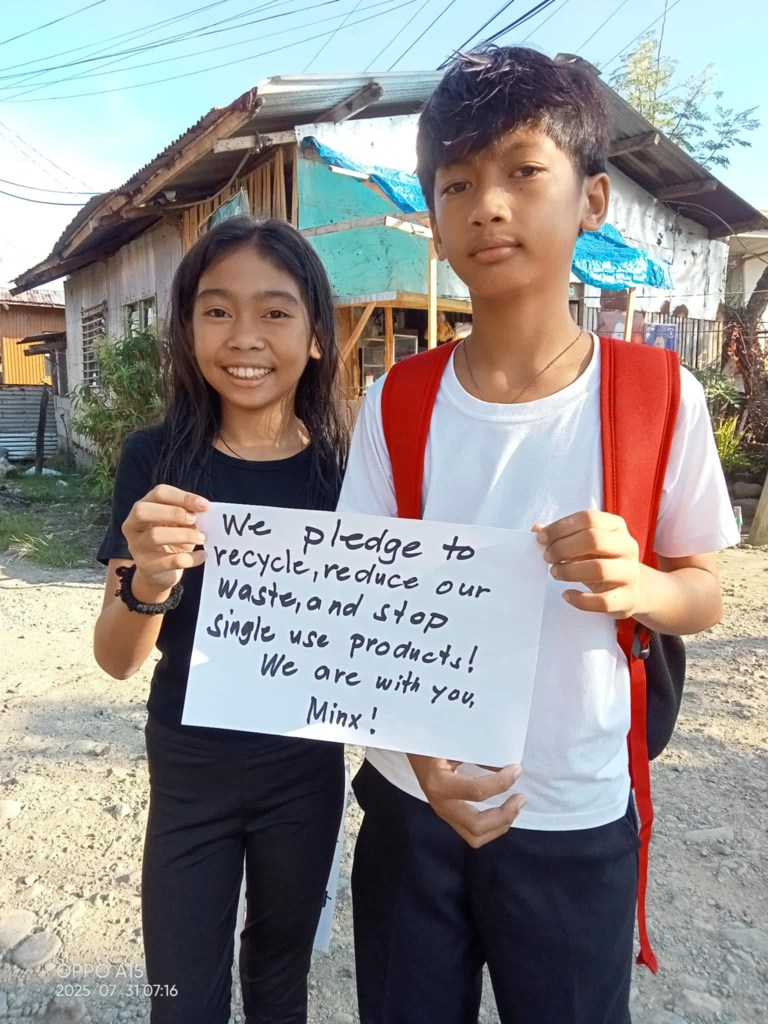 We pledge to
recycle, reduce our
waste, and stop
single use products!
We are with you,
Minx!
OPPO A15
2025/07/31 07:16